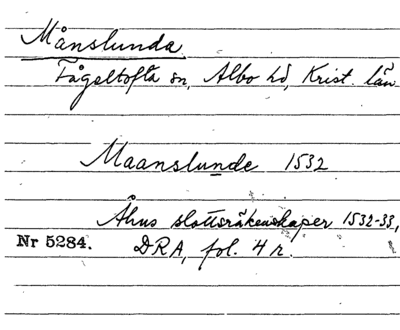 Månslunda
Fågeltofta sn, Albo hd, Krist. län
Maanslunde 1532
Åhus slottsräkenskaper 1532-33,
Nr 5284. DRA, fol. 4 r.